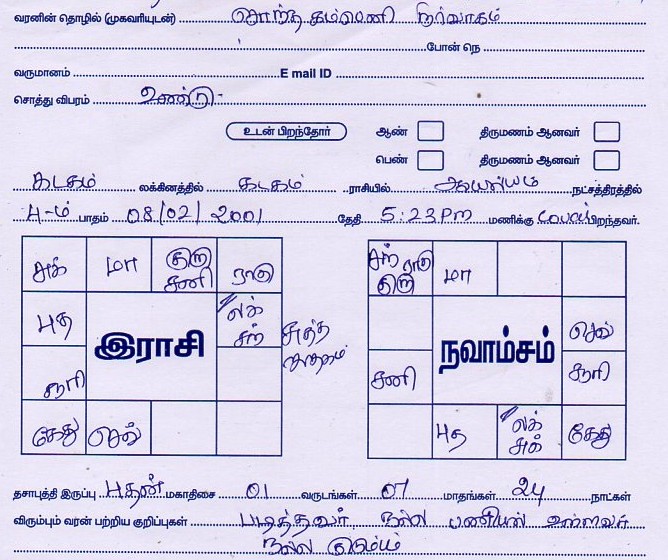 வரனின் தொழில் (முகவரியுடன்) சொந்த கம்பெனி நிர்வாகம்
போன் நெ
வருமானம் E mail ID
சொத்து விபரம் உண்டு
உடன் பிறந்தோர் ஆண் திருமணம் ஆனவர்
பெண் திருமணம் ஆனவர்
கடகம் லக்கினத்தில் கடகம் ராசியில் ஆயில்யம் நட்சத்திரத்தில்
4-ம் பாதம் 08/02/2001 தேதி 5:23 Pm மணிக்கு பிறந்தவர்.
சுக் மா குரு சனி ராகு
புத லக் சந் சுத்த ஜாதகம்
இராசி
சூரி
கேது செவ்
சந் ராகு குரு மா
செவ்
நவாம்சம்
சனி சூரி
புத லக் சுக் கேது
தசாபுத்தி இருப்பு புதன் மகாதிசை 01 வருடங்கள் 07 மாதங்கள் 24 நாட்கள்
விரும்பும் வரன் பற்றிய குறிப்புகள் படித்தவர் நல்ல பணியில் உள்ளவர்
நல்ல குடும்பம்